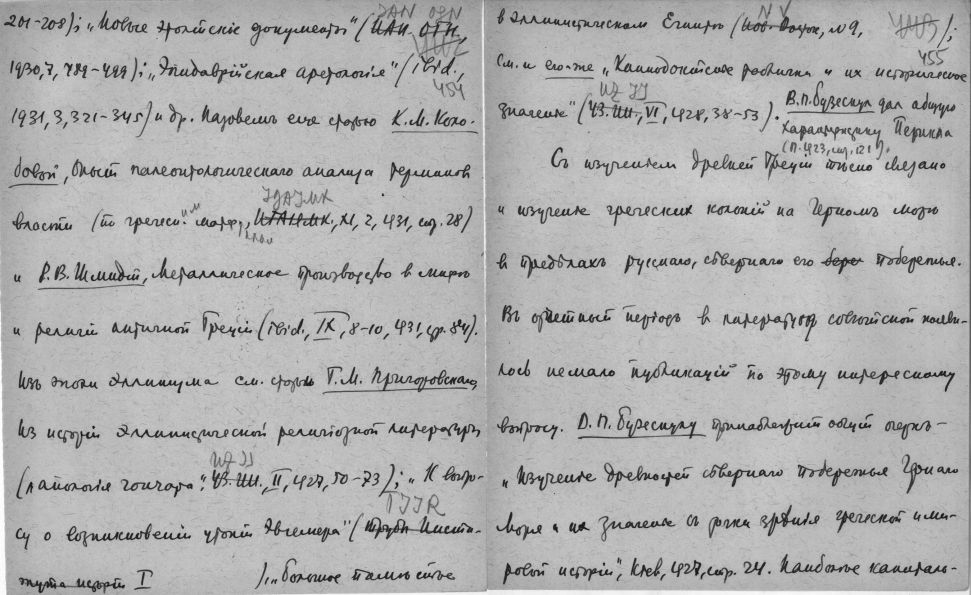 201-208); „Новые Этолійскіе документы" (ИАН. ОГН,
IAN OGN
1930, 7, 489-499); „Эпидаврійская аретологія" (ibid.,
454
1931, 3, 321-345) и др. Назовемъ еще статью К.М. Коло-
бовой, Опытъ палеонтологическаго анализа терминов
власти (по греческ. матер,
IGAIMK
ИГАИМК, XI, 2, 1931, стр. 28)
и Р.В. Шмидтъ, Металлическое производство в мифѣ
и религіи античной Греціи (ibid., IX, 8-10, 1931, стр. 84).
Изъ эпохи эллинизма см. статьи Г.М. Пригоровскаго,
Из исторіи эллинистической религіозной литературы
UZ II
(апологія гончара", УЗ. ИИ., II, 1927, 50-73); „К вопро-
TIIR
су о возникновеніи утопій Эвгемера" (Труды Инсти-
тута исторіи I ); „Большое помѣстье
в эллинистическом Египтѣ (Нов. Восток, № 9,
N V
455
см. и его-же „Каппадокійскіе таблички и их историческое
UZ II
значеніе" (УЗ. ИИ., VI, 1928, 38-53). В.П. Бузескул дал общую
характеристику Перикла
(П. 1923, стр. 121).
Съ изученіем древней Греціи тѣсно связано
и изученіе греческих колоній на Черномъ морѣ
в предѣлахъ русскаго, сѣвернаго его бере побережья.
Въ отчетный періодъ в литературѣ совѣтской появи-
лось немало публикацій по этому интересному
вопросу. В.П. Бузескулу принадлежит общій очеркъ -
„Изученіе древностей сѣвернаго побережья Чернаго
Моря и их значеніе съ точки зрѣнія греческой и ми-
ровой исторіи", Кіев, 1927, стр. 24. Наиболѣе капиталь-